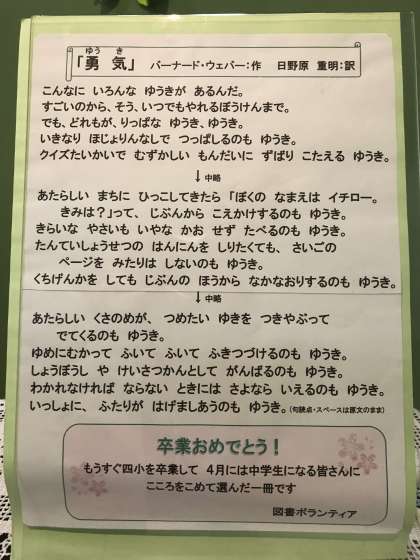 ゆう き
「勇 気」 バーナード・ウェバー:作 日野原 重明:訳
こんなに いろんな ゆうきが あるんだ。
すごいのから、そう、いつでもやれるぼうけんまで。
でも、どれもが、りっぱな ゆうき、ゆうき。
いきなり ほじょりんなしで つっぱしるのも ゆうき。
クイズたいかいで むずかしい もんだいに ずばり こたえる ゆうき。
↓中略
あたらしい まちに ひっこしてきたら 「ぼくの なまえは イチロー。
きみは?」って、じぶんから こえかけするのも ゆうき。
きらいな やさいも いやな かお せず たべるのも ゆうき。
たんていしょうせつの はんにんを しりたくても、 さいごの
ページを みたりは しないのも ゆうき。
くちげんかを しても じぶんの ほうから なかなおりするのも ゆうき。
↓中略
あたらしい くさのめが、 つめたい ゆきを つきやぶって
でてくるのも ゆうき。
ゆめにむかって ふいて ふいて ふきつづけるのも ゆうき。
しょうぼうし や けいさつかんとして がんばるのも ゆうき。
わかれなければ ならない ときには さよなら いえるのも ゆうき。
いっしょに、 ふたりが はげましあうのも ゆうき。(句読点・スペースは原文のまま)
卒業おめでとう!
もうすぐ四小を卒業して 4月には中学生になる皆さんに
こころをこめて選んだ一冊です
図書ボランティア